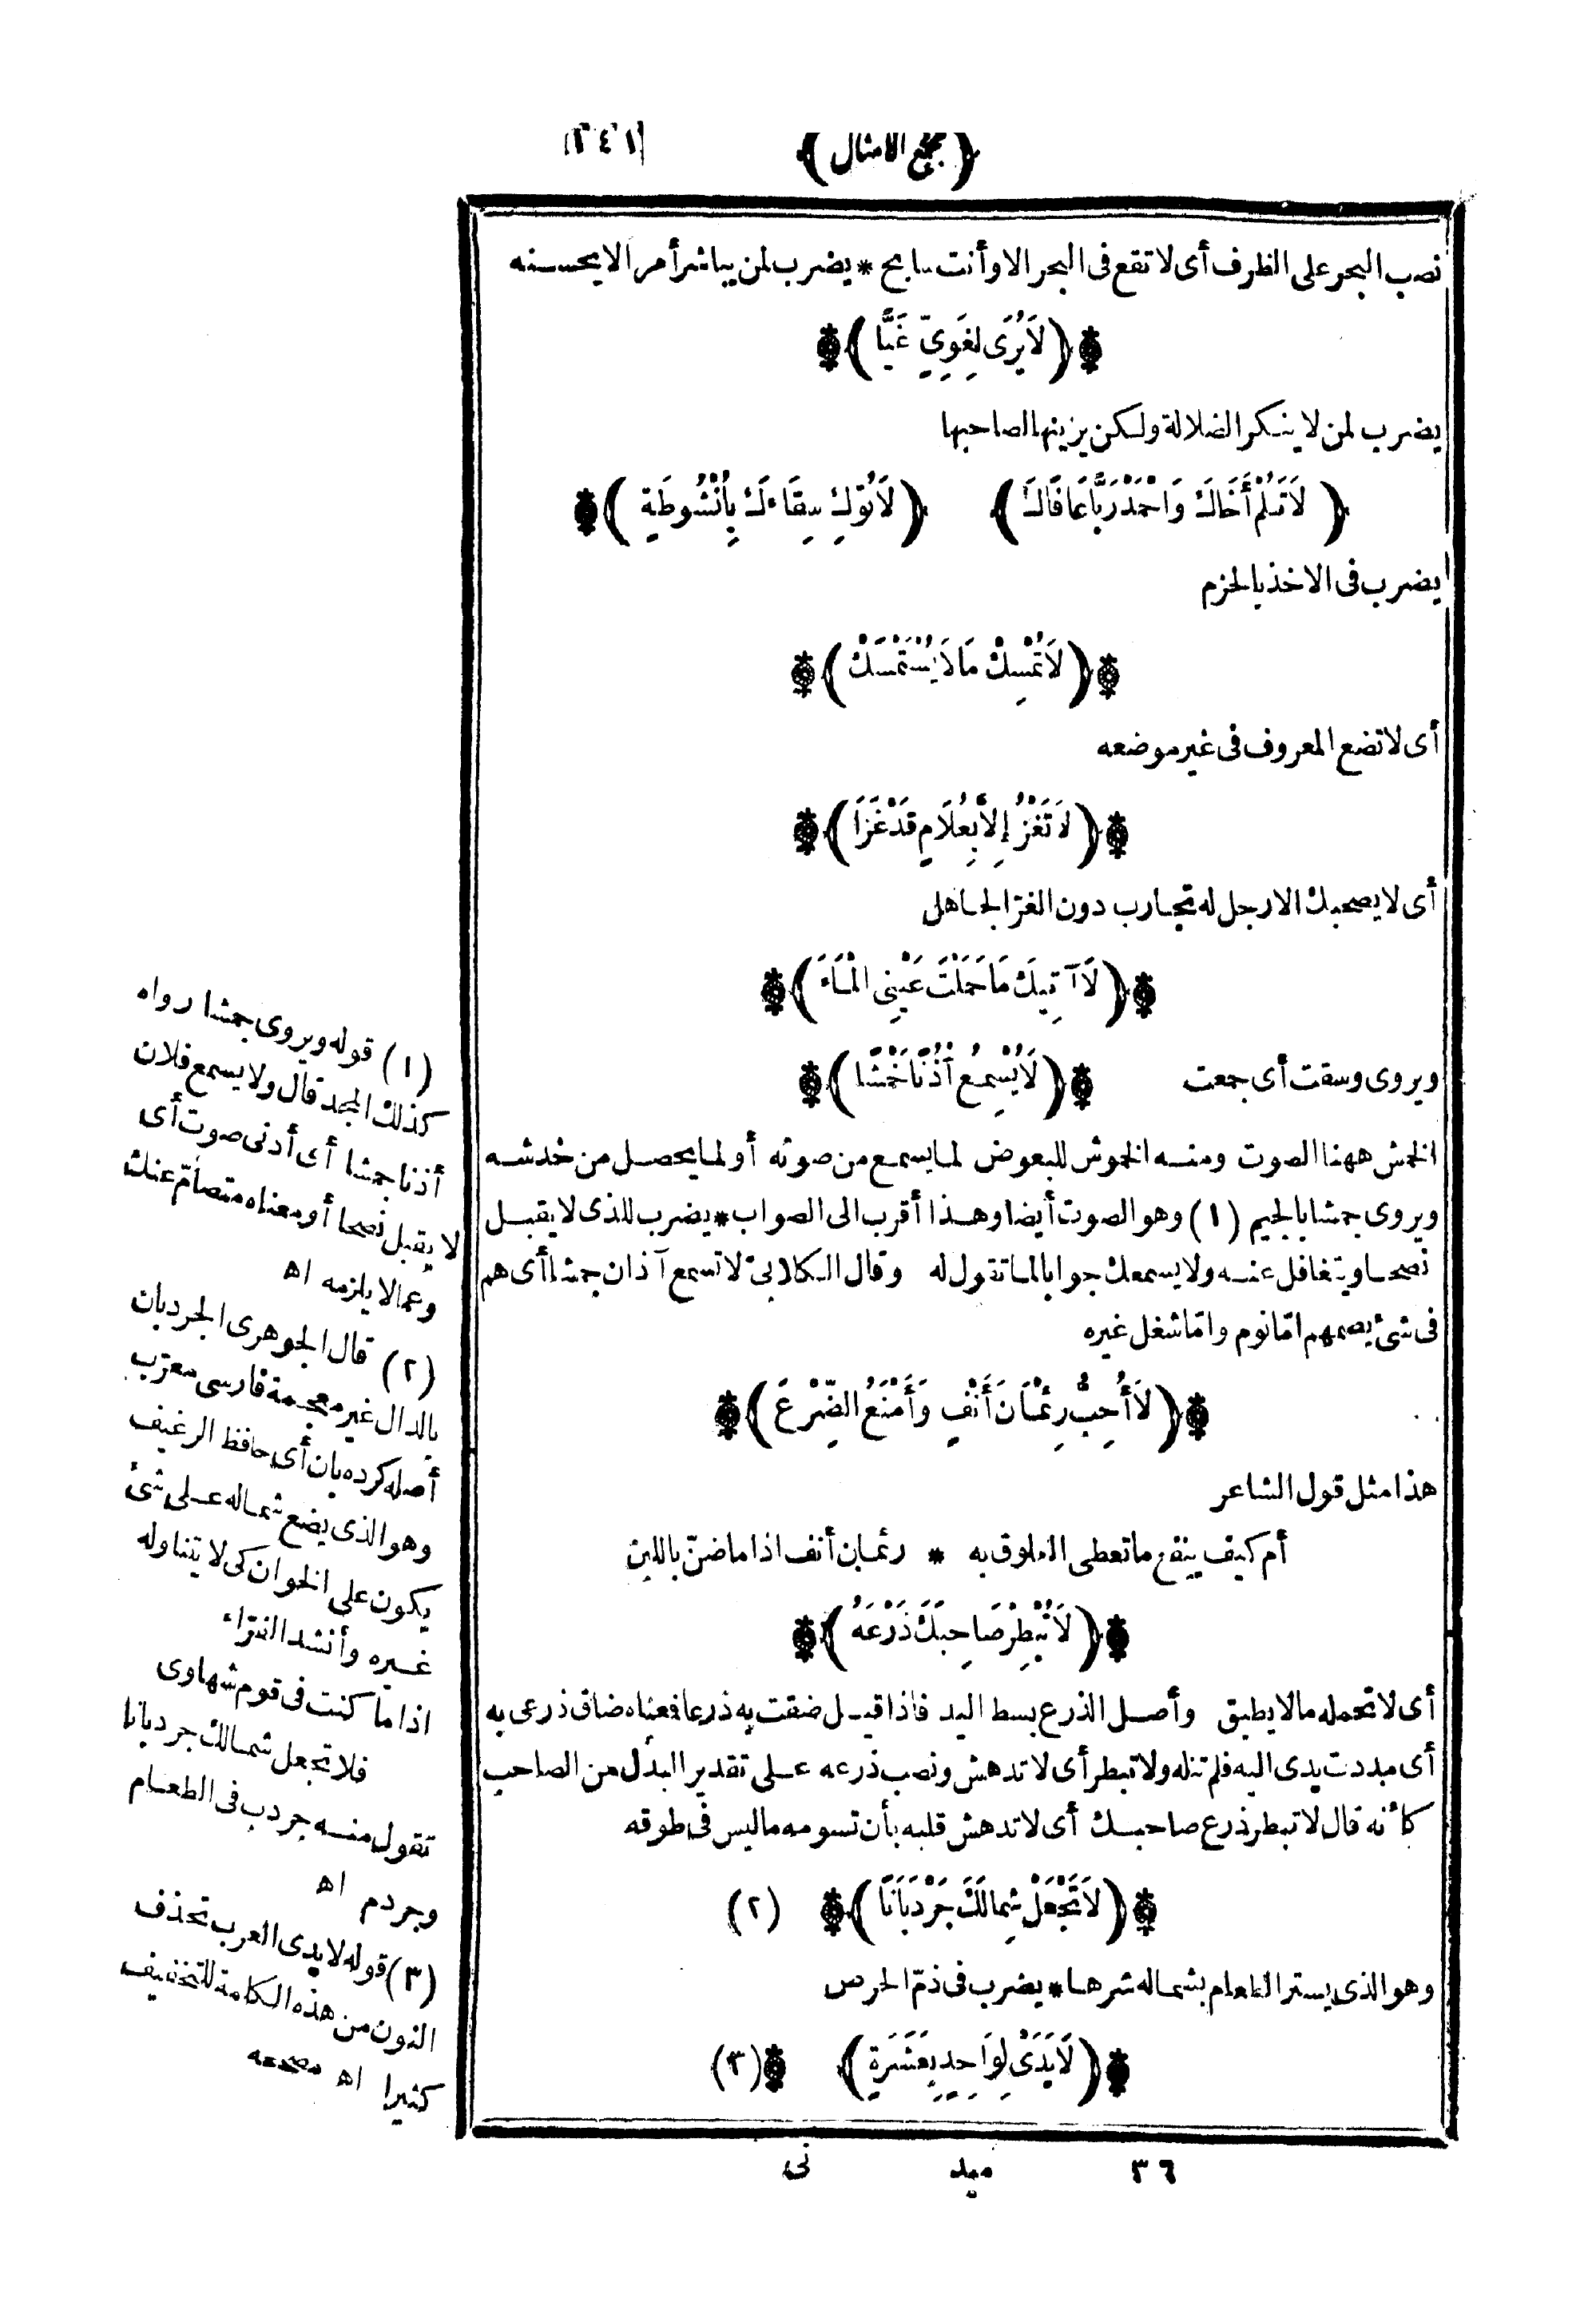 ﴿مجمع الامثال﴾
(٢٤١)
نصب البحر على الظرف أى لا تقع فى البحر الا وأنت سابح * يضرب لمن يباشر أمرا لا يحسنه
﴿لَا يُرَى لِغَوِىٍّ غَيًّا﴾
يضرب لمن لا ينكر الضلالة ولكن يزينها لصاحبها
﴿لَا تَلُمْ أَخَاكَ وَاحْمَدْ رَبًّا عَافَاكَ﴾ ﴿لَا تُوكِ سِقَاءَكَ بِأُنْشُوطَةٍ﴾
يضرب فى الاخذ بالحزم
﴿لَا تُمْسِكْ مَا لَا يُسْتَمْسَكْ﴾
أى لا تضع المعروف فى غير موضعه
﴿لَا تَغْزُ إِلَّا بِغُلَامٍ قَدْ غَزَا﴾
أى لا يصحبك الا رجل له تجارب دون الغرّ الجاهل
﴿لَا آتِيكَ مَا حَمَلَتْ عَيْنِى الْمَاءَ﴾
ويروى وسقت أى جمعت ﴿لَا يُسْمِعُ أُذُنًا خَمْشًا﴾
الخمش ههنا الصوت ومنه الخموش للبعوض لما يسمع من صوته أو لما يحصل من خدشه
ويروى جمشا بالجيم (١) وهو الصوت أيضا وهذا أقرب الى الصواب * يضرب للذى لا يقبل
نصحا ويتغافل عنه ولا يسمعك جوابا لما تقول له وقال الكلابىّ لا تسمع آذان جمشا أى هم
فى شئ يصمهم امّا نوم وامّا شغل غيره
﴿لَا أُحِبُّ رِئْمَانَ أَنْفٍ وَأَمْنَعُ الضَّرْعَ﴾
هذا مثل قول الشاعر
أم كيف ينفع ما تعطى العلوق به * رئمان أنف اذا ما ضنّ باللبن
﴿لَا تُبْطِرْ صَاحِبَكَ ذَرْعَهُ﴾
أى لا تحمله ما لا يطيق وأصل الذرع بسط اليد فاذا قيل ضقت به ذرعا فمعناه ضاق ذرعى به
أى مددت يدى اليه فلم تنله ولا تبطر أى لا تدهش ونصب ذرعه على تقدير البدل من الصاحب
كأنه قال لا تبطر ذرع صاحبك أى لا تدهش قلبه بأن تسومه ما ليس فى طوقه
﴿لَا تَجْعَلْ شِمَالَكَ جَرْدَبَانًا﴾ (٢)
وهو الذى يستر الطعام بشماله شرها * يضرب فى ذمّ الحرص
﴿لَا يَدَىْ لِوَاحِدٍ بِعَشَرَةٍ﴾ (٣)
(١) قوله ويروى جمشا رواه
كذلك المجد قال ولا يسمع فلان
أذنا جمشا أى أدنى صوت أى
لا يقبل نصحا أو معناه متصامّ عنك
وعما لا يلزمه اه
(٢) قال الجوهرى الجردبان
بالدال غير معجمة فارسى معرّب
أصله كرده بان أى حافظ الرغيف
وهو الذى يضع شماله على شئ
يكون على الخوان كى لا يتناوله
غيره وأنشد الفرّاء
اذا ما كنت فى قوم شهاوى
فلا تجعل شمالك جردبانا
تقول منه جردب فى الطعام
وجردم اه
(٣) قوله لا يدى العرب تحذف
النون من هذه الكلمة للتخفيف
كثيرا اه مصححه
٣٦ ميد نى